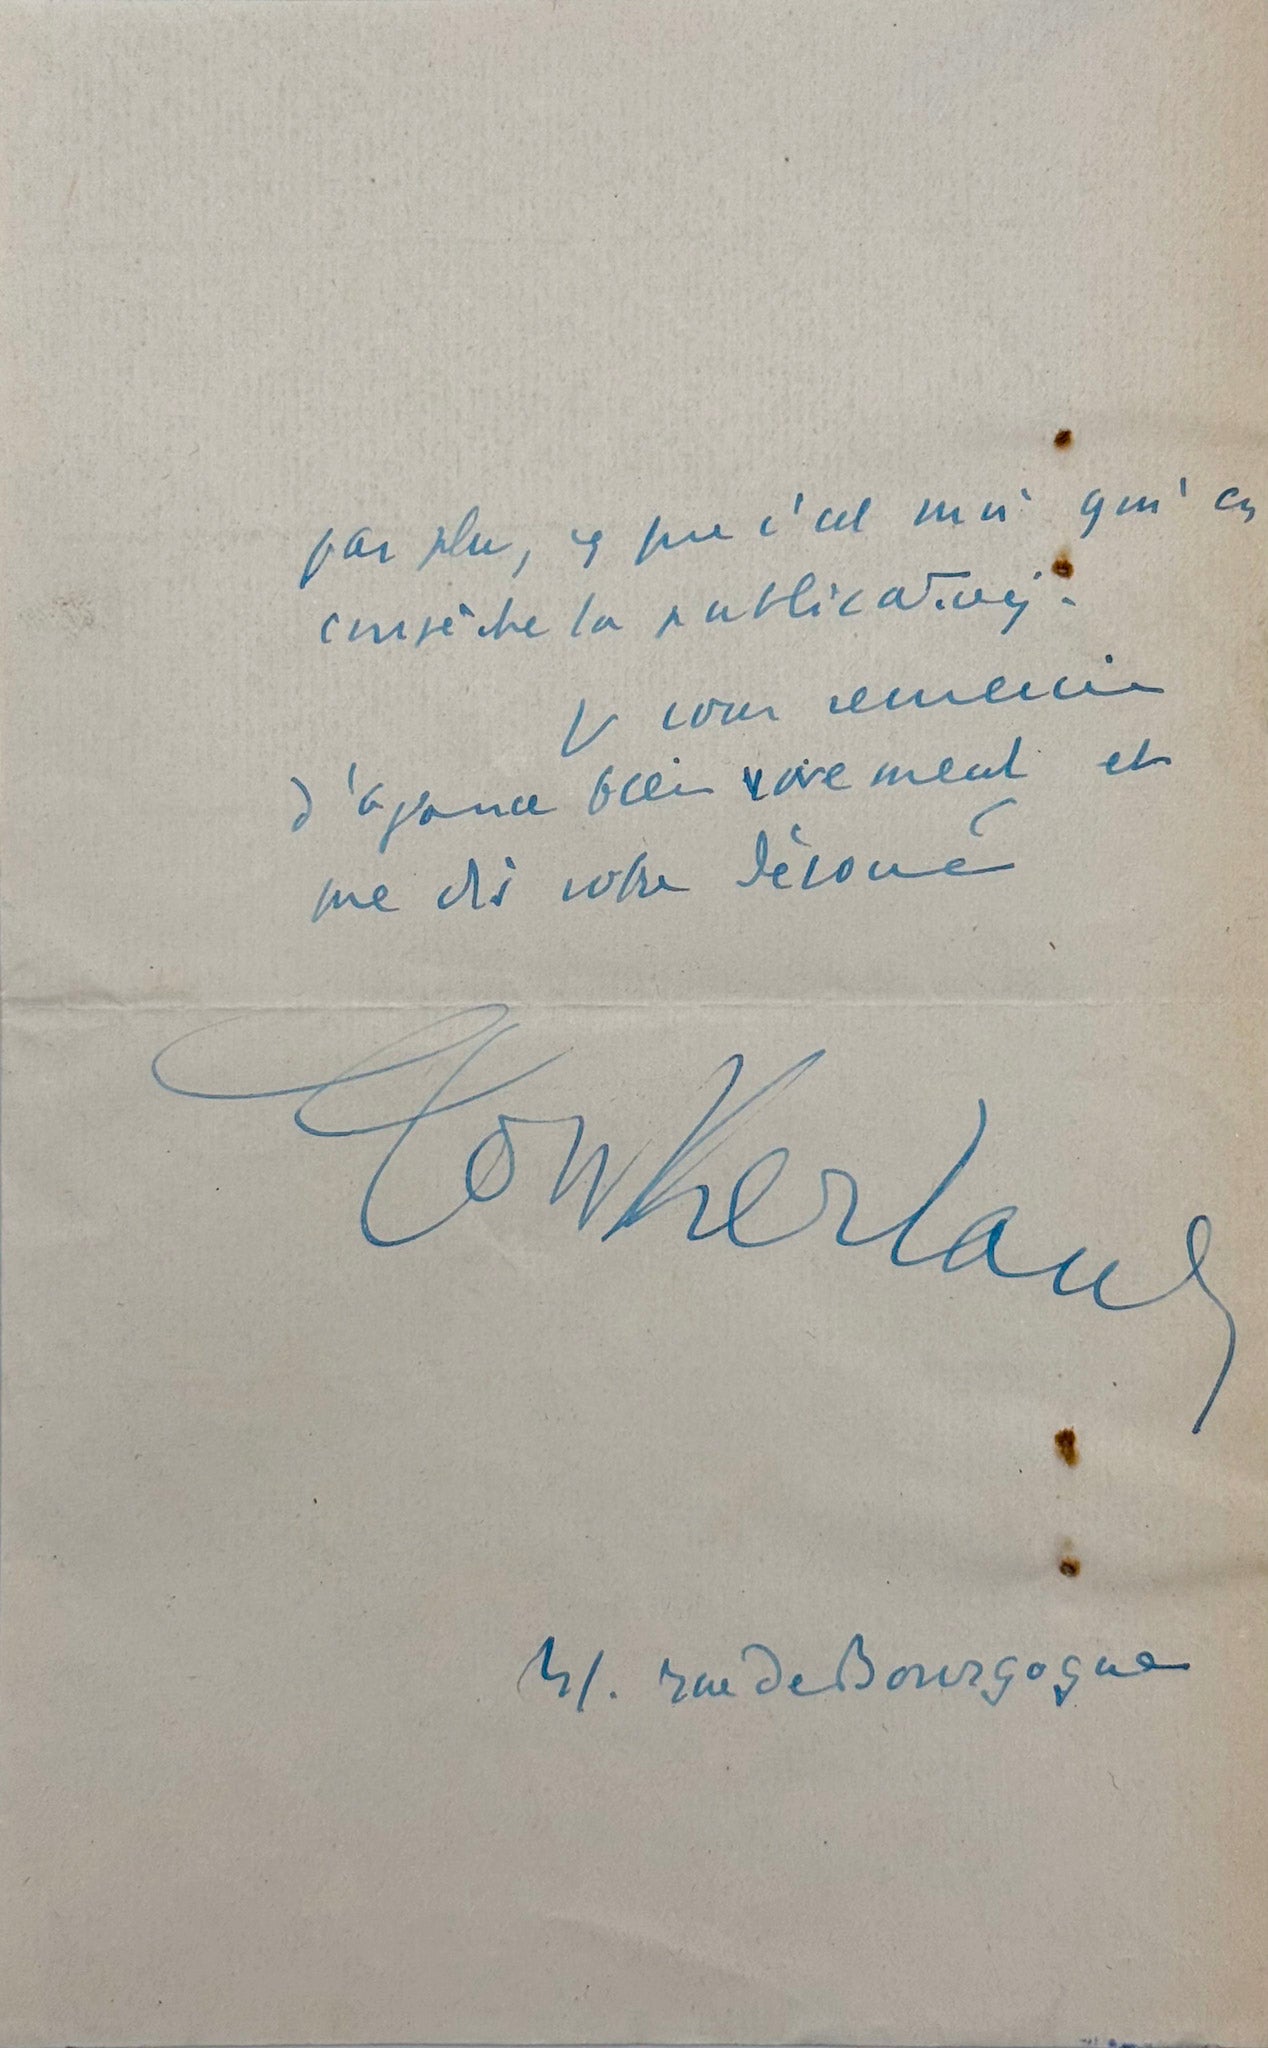 pas plu, et que c'est moi qui en
empêche la publication.
Je vous remercie
d'avance bien vivement et
me dis votre dévoué
Montherlant
rue de Bourgogne